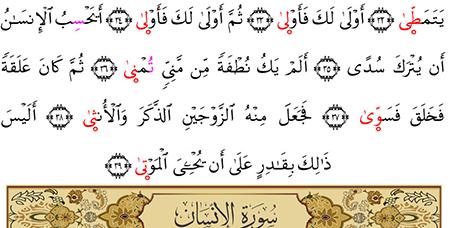 يَتَمَطّىٰ ﴿٣٢﴾ أَوْلَىٰ لَكَ فَأَوْلىٰ ﴿٣٣﴾ ثُمَّ أَوْلَىٰ لَكَ فَأَوْلىٰ ﴿٣٤﴾ أَيَحْسِبُ ٱلْإِنسَٰنُ
أَن يُتْرَكَ سُدًى ﴿٣٥﴾ أَلَمْ يَكُ نُطْفَةً مِّن مَّنِىٍّ تُمْنىٰ ﴿٣٦﴾ ثُمَّ كَانَ عَلَقَةً
فَخَلَقَ فَسَوّىٰ ﴿٣٧﴾ فَجَعَلَ مِنْهُ ٱلزَّوْجَيْنِ ٱلذَّكَرَ وَٱلْأُنثىٰ ﴿٣٨﴾ أَلَيْسَ
ذَٰلِكَ بِقَٰدِرٍ عَلَىٰ أَن يُحْـِۧىَ ٱلْمَوْتىٰ ﴿٣٩﴾
سُورَةُ الإِنْسَانِ